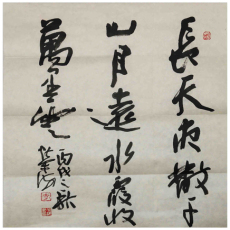 長天夜散千
山月遠水霞收
萬里雲
丙戌之秋